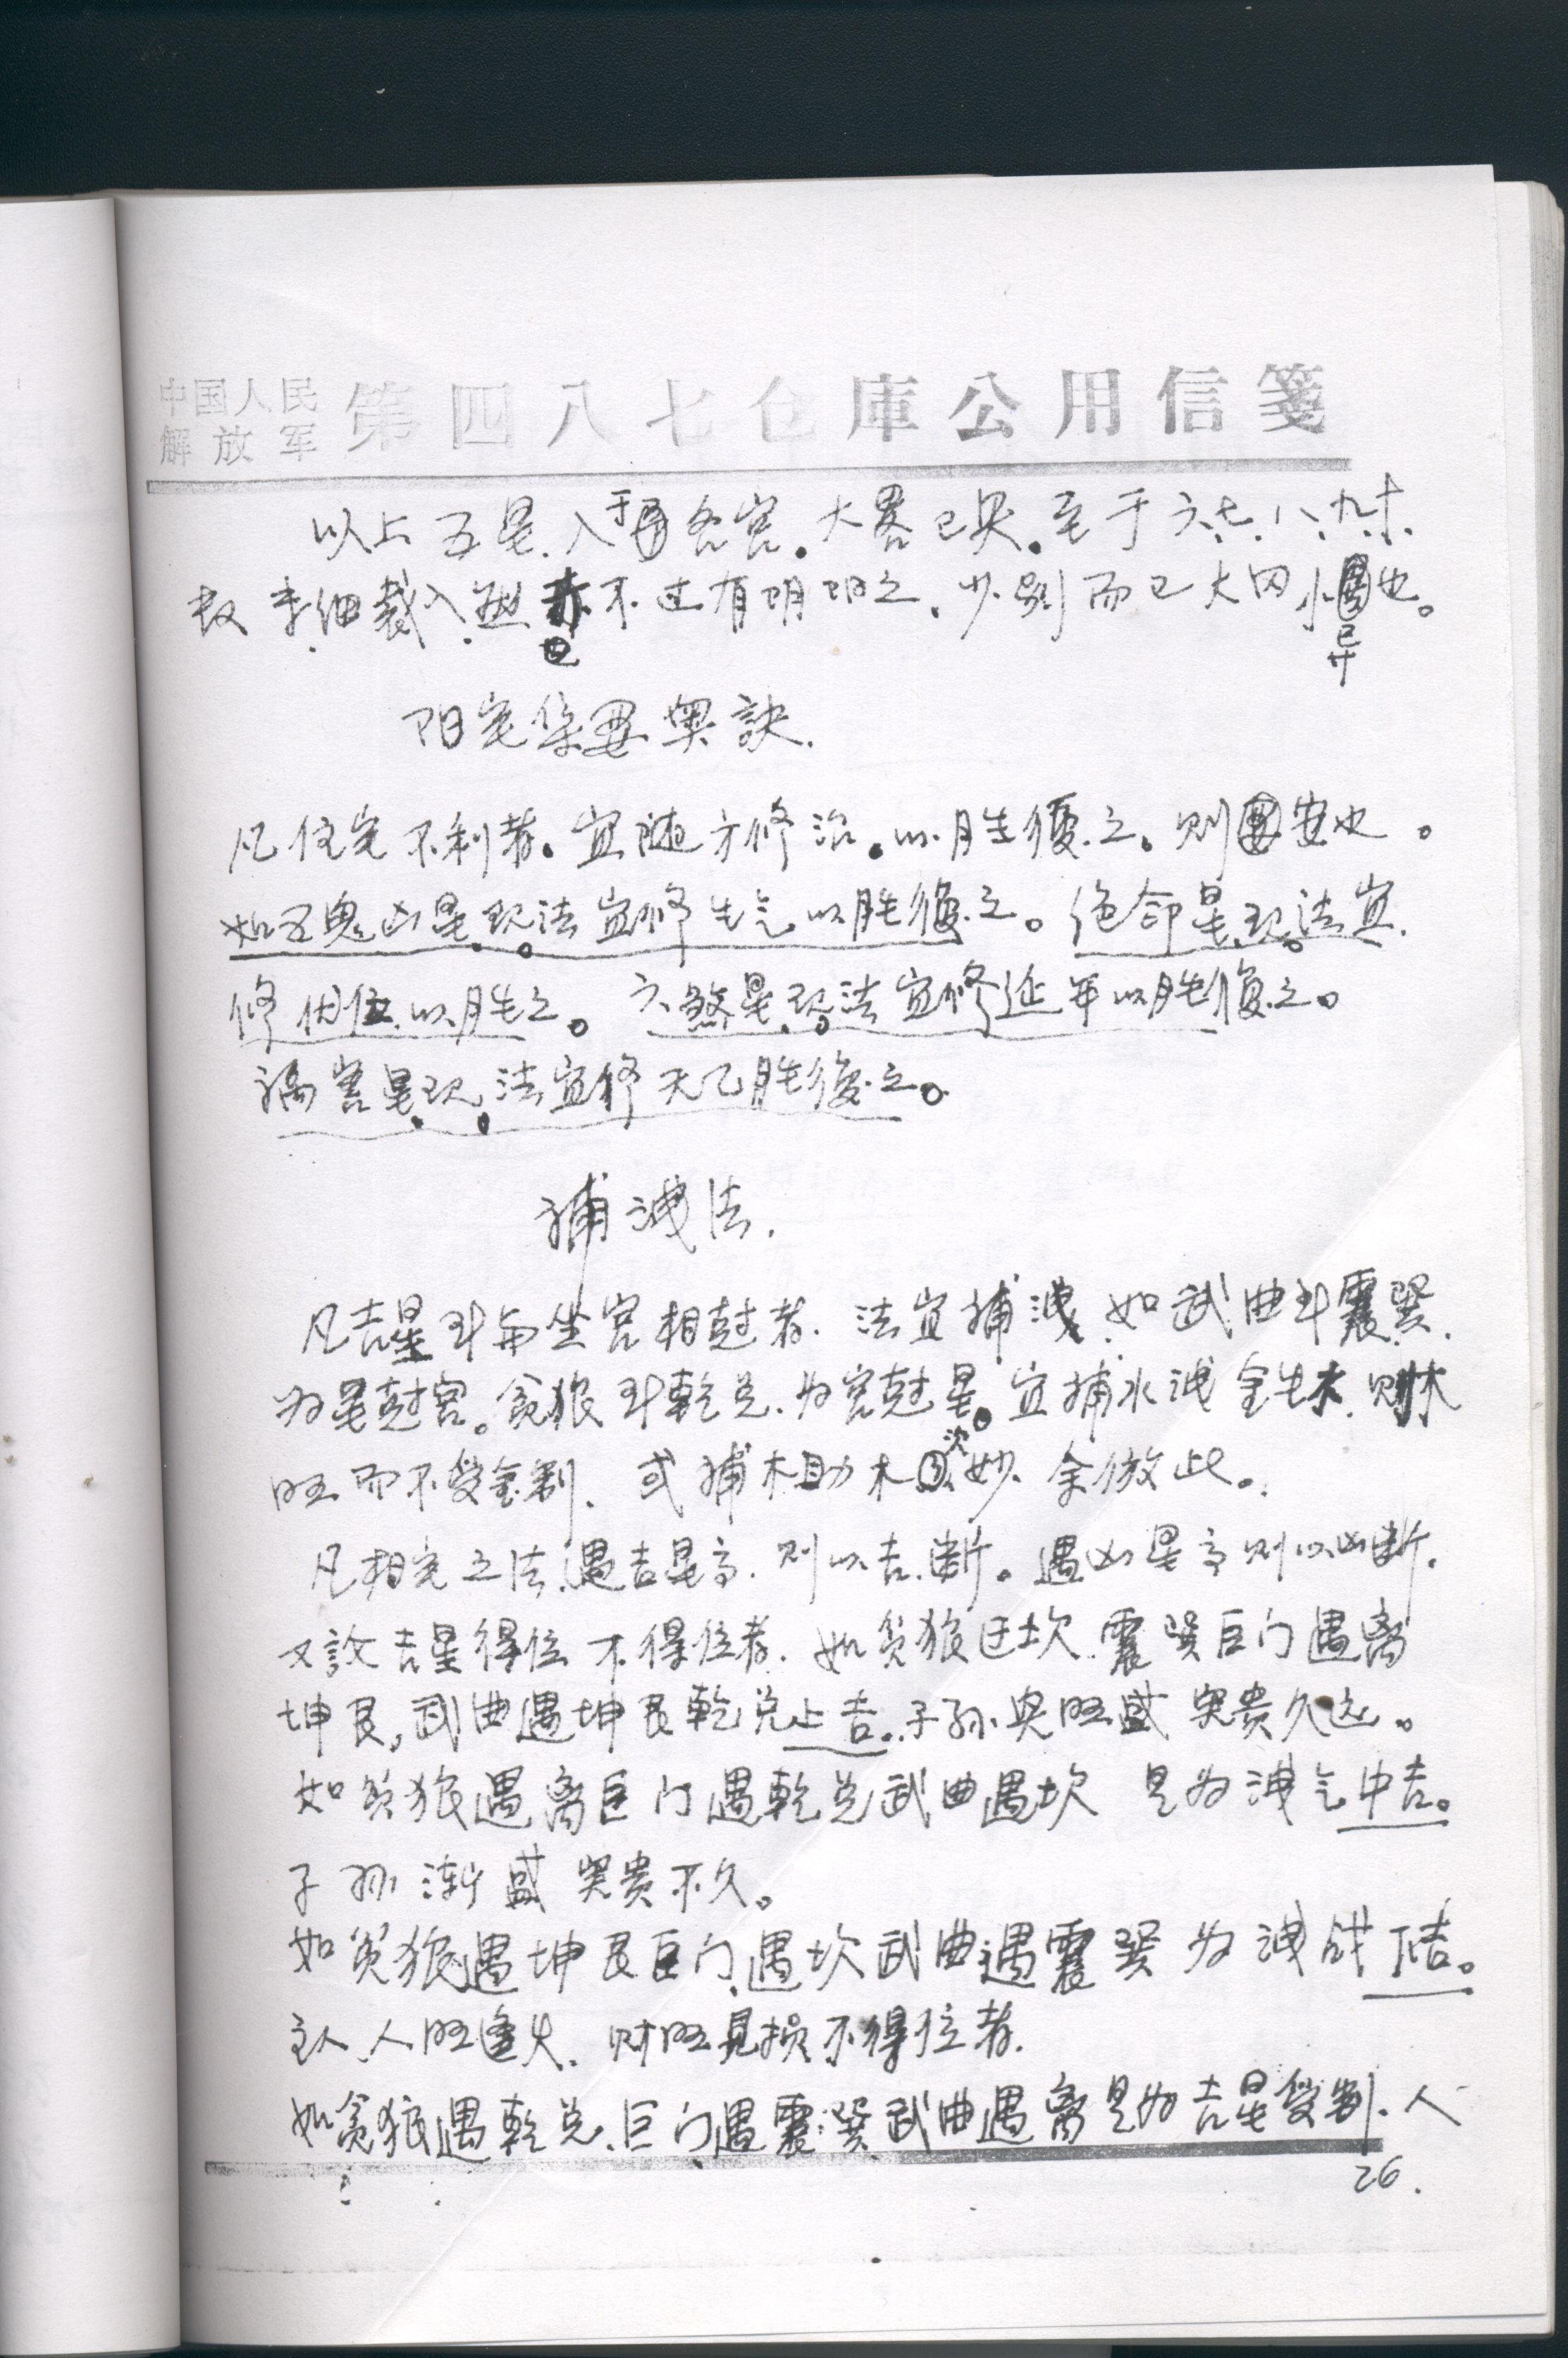 中国人民解放军 第四八七仓庫公用信箋
以上五星.入于各宫。大畧已具.至于六.七.八.九.十.
故未细裁入.不过有阴阳之.少别而已大同小异也。
阳宅集要奥訣.
凡住宅不利者。宜随方修治。以胜復之。则安也。
如五鬼凶星现。法宜修生气以胜復之。绝命星现。法宜.
修伏位以胜之。六煞星现。法宜修延年以胜復之。
禍害星现。法宜修天乙胜復之。
補洩法.
凡吉星斗与坐宫相尅者.法宜補洩.如武曲斗震巽.
为星尅宫。贪狼斗乾兑.为宫尅星。宜補水洩金生木.则木
旺而不受金制.或補木助木次妙.余倣此。
凡相宅之法.遇吉星高.则以吉断。遇凶星高则以凶断.
又設吉星得位不得位者.如贪狼坎.震巽巨门遇离
坤艮,武曲遇坤艮乾兑上吉。子孙兴旺盛荣贵久远。
如贪狼遇离巨门遇乾兑武曲遇坎是为洩气中吉。
子孙渐盛荣贵不久。
如贪狼遇坤艮巨门.遇坎武曲遇震巽为洩战下吉。
主人.人旺逢火.财旺見损不得位者.
如贪狼遇乾兑.巨门遇震巽武曲遇离是为吉星受制.人
26.